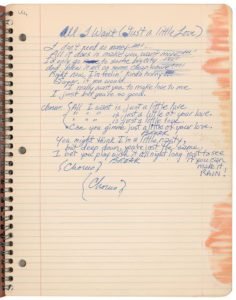 All I Want (Just a little Love)
I don't need no money
All it does is make you want more
Right now, I'm feelin' kinda horny
I really want you to make love to me
I just bet you're so good.
Chorus: {All I want is just a little love
" " " is just a little of your love.
" " " is just a little love
Can you gimme just a little of your love.
BREAK
You might think I'm a little nasty,
but deep down, you're just the same.
I bet you play with it all night long just to see
BREAK if you can
{Chorus} make it
RAIN!
{Chorus}